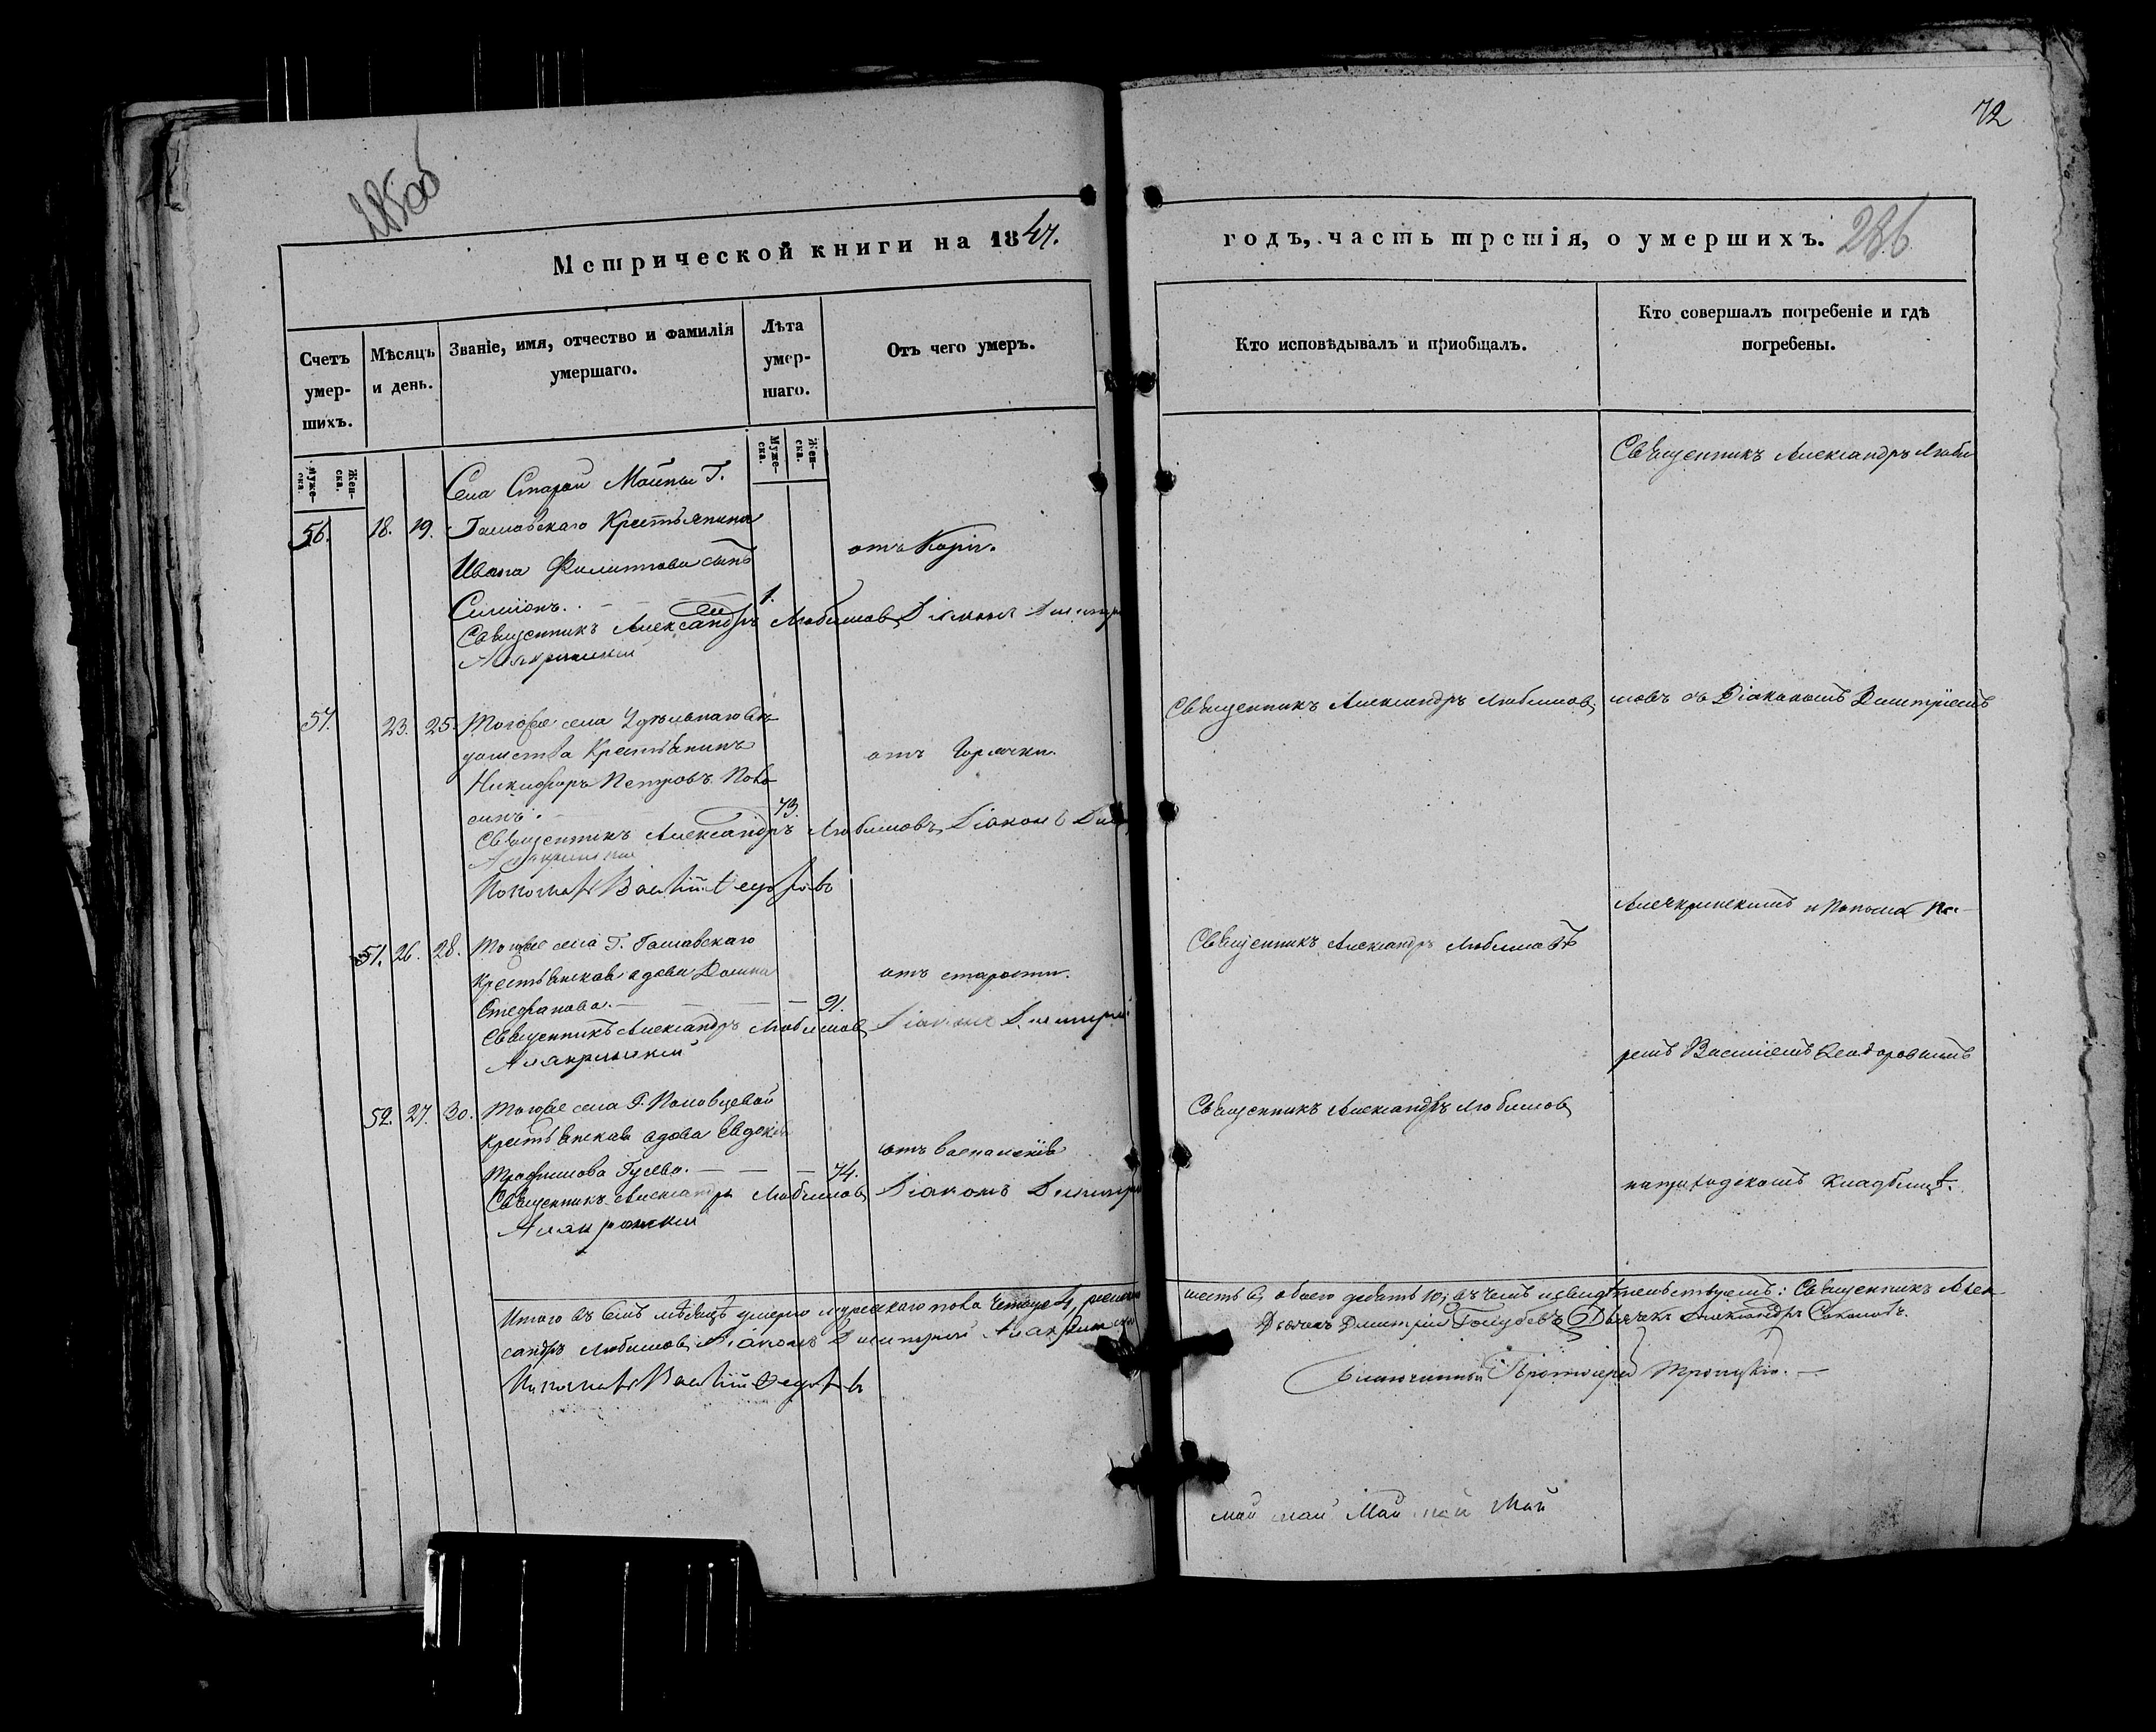 285об
72
Метрической книги на 1847.
годъ, часть третія, о умершихъ. 286
Счетъ умер-шихъ.
Мѣсяцъ и день.
Званіе, имя, отчество и фамилія умершаго.
Лѣта умер-шаго.
Отъ чего умеръ.
Кто исповѣдывалъ и пріобщалъ.
Кто совершалъ погребеніе и гдѣ погребены.
Муже-ска. Жен-ска.
Муже-ска. Жен-ска.
Села Старой Майны Г.
56. 18. 19. Крестьянина
Ивана Филиппова сынъ
отъ Кори.
Симіонъ. 1.
Священникъ Александръ Любимовъ Діаконъ Димитрій
57. 23. 25. Тогоже села Удѣльнаго вѣ-
домства Крестьянинъ
Никифоръ Петровъ
отъ горячки.
73.
Священникъ Александръ Любимовъ, Діаконъ
Пономарь Василій Ѳедоровъ
51. 26. 28. Тогоже села Г.
крестьянская вдова
отъ старости.
Стефанова. 91.
Священникъ Александръ Любимовъ Діаконъ Димитрій
52. 27. 30. Тогоже села Г.
Крестьянская вдова Евдокія
отъ воспаленія
Трофимова 74.
Священникъ Александръ Любимовъ Діаконъ Димитрій
Итого въ семъ мѣсяцѣ умерло мужескаго пола четыре 4, женска
сандръ Любимовъ Діаконъ Димитрій
Пономарь Василій Ѳедоровъ
Священникъ Александръ Люби
Священникъ Александръ Любимовъ
мовъ съ Діакономъ Димитріемъ
и Понома
Священникъ Александръ Любимовъ
ремъ Василіемъ Ѳеодоровымъ
Священникъ Александръ Любимовъ
на приходскомъ кладбищѣ.
шесть 6, обоего десять 10; въ чемъ и свидѣтельствуемъ: Священникъ Алек-
Дьячекъ Дмитрій Голубевъ Дьячекъ Александръ Соколовъ.
Благочинный Протоіерей Троицкій.
май май Май май Май